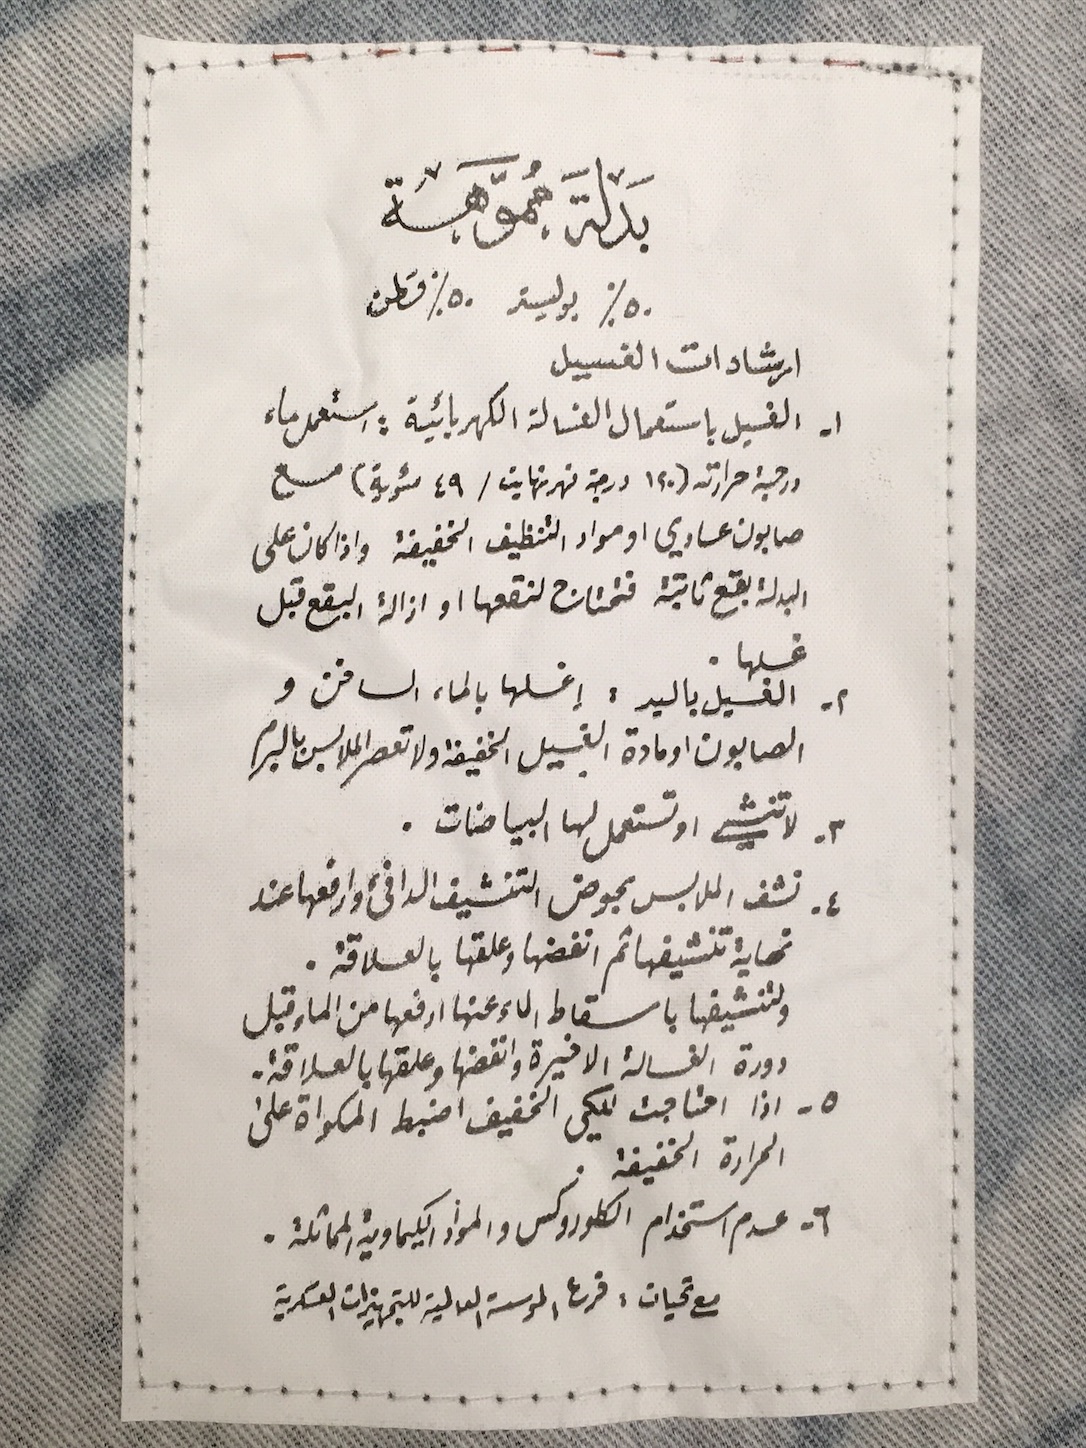 بَدْلَةَ مُمَوَّهَة
٥٠٪ بوليستر ٥٠٪ قطن
ارشادات الغسيل
١- الغسيل باستعمال الغسالة الكهربائية : استعمل ماء
درجة حرارته (١٢٠ درجة فهرنهايت / ٤٩ مئوية) مع
صابون عادي او مواد التنظيف الخفيفة واذا كان على
البدلة بقع ثابتة فتحتاج لنقعها او ازالة البقع قبل
غسلها .
٢- الغسيل باليد : إغسلها بالماء الساخن و
الصابون او مادة الغسيل الخفيفة ولا تعصر الملابس بالبرم
٣- لا تنشي او تستعمل لها البياضات .
٤- نشف الملابس بحوض التنشيف الدافئ وارفعها عند
نهاية تنشيفها ثم انفضها وعلقها بالعلاقة .
ولتنشيفها باسقاط الماء عنها ارفعها من الماء قبل
دورة الغسالة الاخيرة وانفضها وعلقها بالعلاقة .
٥- اذا احتاجت للكي الخفيف اضبط المكواة على
الحرارة الخفيفة .
٦- عدم استخدام الكلوروكس والمواد الكيماوية المماثلة .
مع تحيات : فرع المؤسسة العالمية للتجهيزات العسكرية